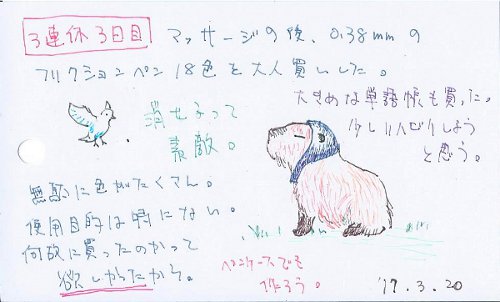 3連休3日目 マッサージの後、0.38mmの
フリクションペン18色を大人買いした。
消せるって
素敵。
大きめな単語帳も買った。
少しリハビリしよう
と思う。
無駄に色がたくさん。
使用目的は特にない。
何故に買ったのかって
欲しかったから。
ペンケースでも
作ろう。
'17.3.20